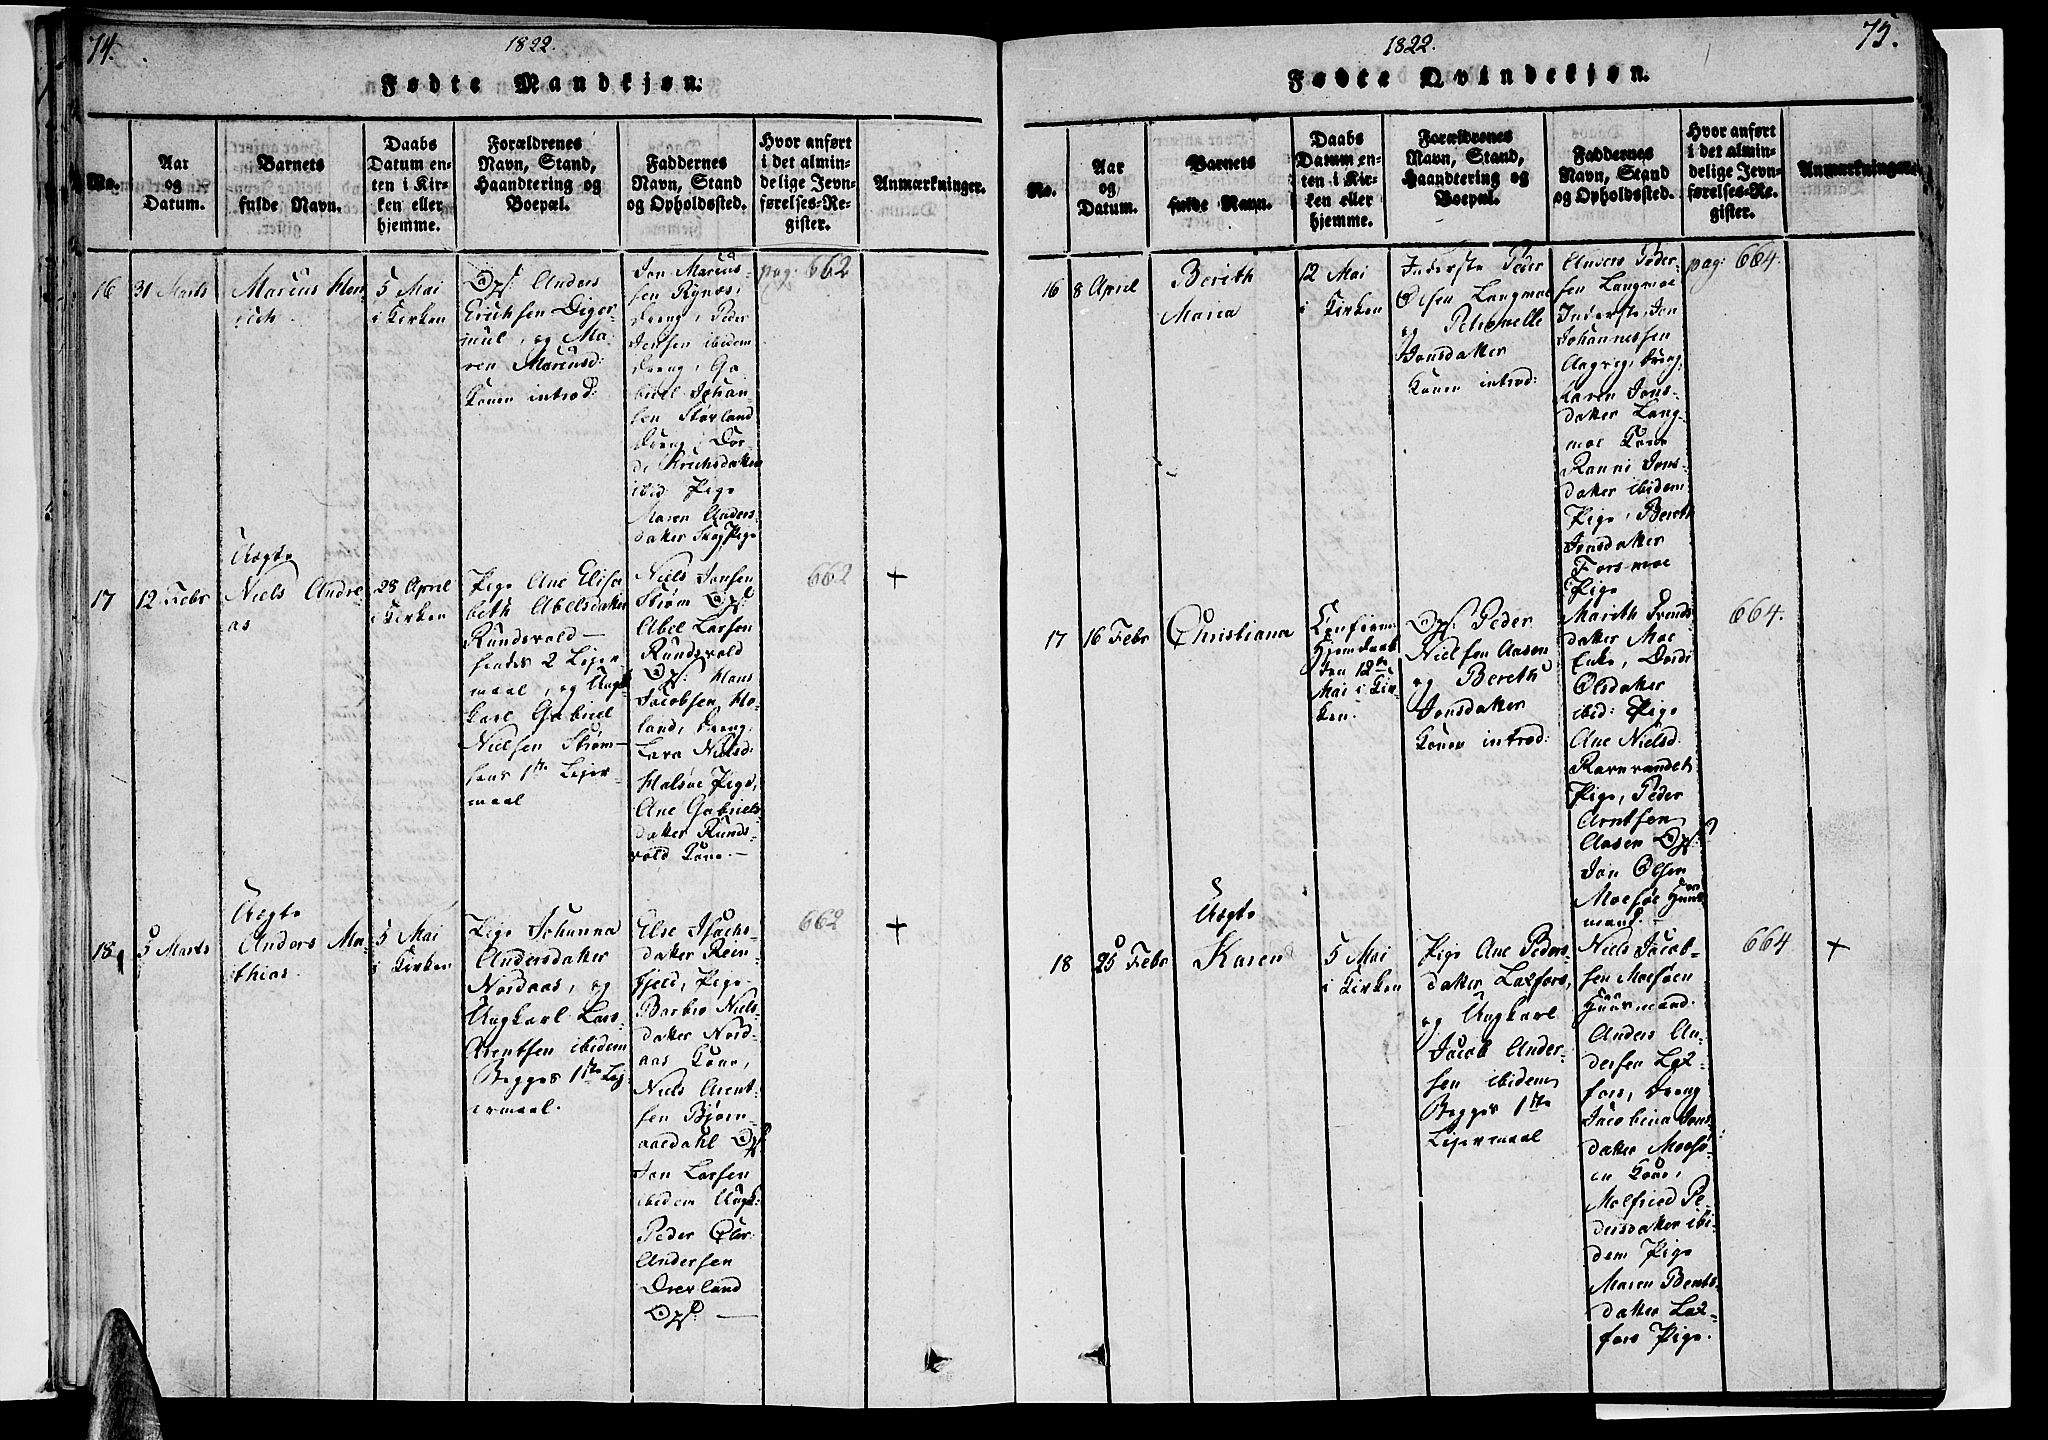 74.
1822.
Fødte Mandkjøn.
No.
Aar
og
Datum.
Barnets
fulde Navn.
Daabs
Datum en-
ten i Kir-
ken eller
hjemme.
Forældrenes
Navn, Stand,
Haandtering og
Boepæl.
Faddernes
Navn, Stand
og Opholdssted.
Hvor anført
i det almin-
delige Jevn-
førelses-Re-
gister.
Anmærkninger.
16
31 Marts
Marcus Hen-
rich
5 Mai
i Kirken
Ops: Anders
Erichsen Diger-
mul, og Ma-
ren Marcusd:
Konen introd:
Jon Marcus-
sen Rynæs,
Dreng, Peder
Jensen ibidem
Dreng, Ga-
briel Johan-
sen Storland
Dreng, Dor-
de Erichsdatter
ibid Pige
Maren Anders-
datter Skog Pige
pag: 662
17
12 Febr
Uægte
Niels Andre-
as
28 April
i Kirken
Pige Ane Elisa-
beth Abelsdatter
Rundsvold
hendes 2 Lejer-
maal, og Ungk
karl Gabriel
Nielsen Strøm-
hans 1ste Lejer-
maal
Niels Jonsen
Strøm Ops:
Abel Larsen
Rundsvold
Ops: Hans
Jacobsen Ho-
land, Dreng,
Lava Nielsd:
Halsøe Pige,
Ane Gabriels-
datter Runds-
vold Kone.
662
+
18
5 Marts
Uægte
Anders Ma-
thias
5 Mai
i Kirken
Pige Johanna
Andersdatter
Nordaas, og
Ungkarl Lars
Arentsen ibidem
Begges 1ste Lej-
ermaal.
Else Isachs-
datter Rein-
fjeld, Pige
Barbro Niels-
datter Nord-
aas Kone,
Niels Arent-
sen Bjørn-
aaedahl Ops:
Jon Larsen
ibidem Ungk:
Peder
Andersen
Drevland
Ops:
662
+
75.
1822.
Fødte Qvindekjøn.
No.
Aar
og
Datum.
Barnets
fulde Navn.
Daabs
Datum en-
ten i Kir-
ken eller
hjemme.
Forældrenes
Navn, Stand,
Haandtering og
Boepæl.
Faddernes
Navn, Stand
og Opholdssted.
Hvor anført
i det almin-
delige Jevn-
førelses-Re-
gister.
Anmærkninger.
16
8 April
Berith
Maria
12 Mai
i Kirken
Inderste Peder
Olsen Langmoe
og Petronelle
Jonsdatter
Konen introd:
Anders Peder-
sen Langmoe
Inderste, Jon
Johannessen
Aagvig, Dreng,
Karen Jons-
datter Lang-
moe Kone
Ranni Jons-
datter ibidem
Pige, Bereth
Jonsdatter
Forsmoe
Pige
pag: 664.
17
16 Febr
Christiana
Confirm:
Hjemdaab
den 12te
Mai i Kir-
ken.
Ops: Peder
Nielsen Aasen
og Bereth
Jonsdatter
Konen introd:
Marith Trends-
datter Moe
Enke, Dordi
Olsdatter
ibid: Pige
Ane Nielsd:
Ravnvandet
Pige, Peder
Arntsen
Aasen Ops:
Jon Olsen
Moesøe Huus-
mand.
664.
18
25 Febr
Uægte
Karen
5 Mai
i Kirken
Pige Ane Peders-
datter Laxfors,
og Ungkarl
Jacob Ander-
sen ibidem
Begges 1ste
Lejermaal
Niels Jacob-
sen Moesøen
Huusmand.
Anders An-
dersen Lax-
fors, Dreng
Jacobina Jons-
datter Moesø-
en Kone,
Molfried Pe-
dersdatter ibi-
dem Pige
Maren Bents-
datter Lax-
fors Pige.
664
+